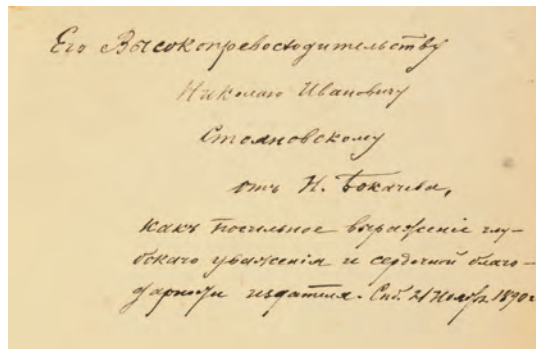 Его Высокопревосходительству
Николаю Ивановичу
Стояновскому
отъ Н. Бокачева,
какъ посильное выраженіе глу-
бокаго уваженія и сердечной благо-
дарности издателя. Спб. 21 Ноябр. 1890 г.